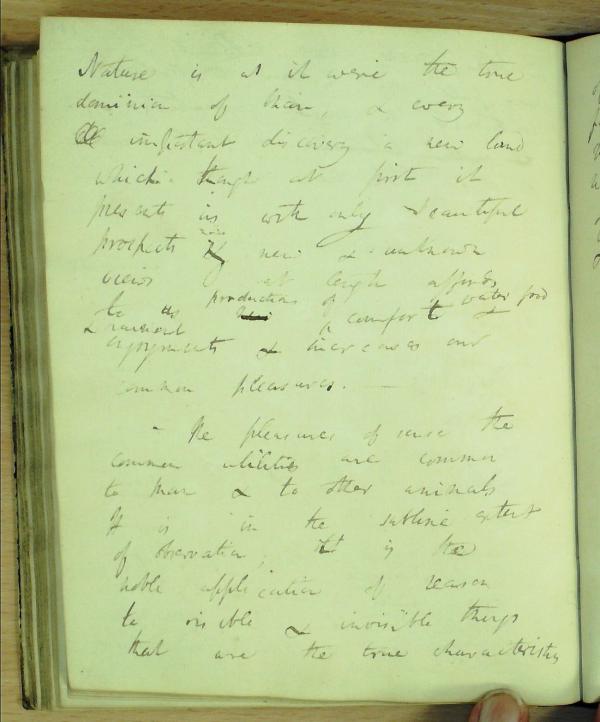 Nature is as it were the true
dominion of Man, & every
important discovery is a new land
which though at first it
presents us with only beautiful
prospects & new & unknown
views at length affords
to us productions of water food
& raiment & comfort &
enjoyments & increases our
common pleasures. —
- The pleasures of sense the
common utilities are common
to Man & to other animals
It is in the sublime extent
of observation, it is the
noble application of reason
to visible & invisible things
that are the true characteristics